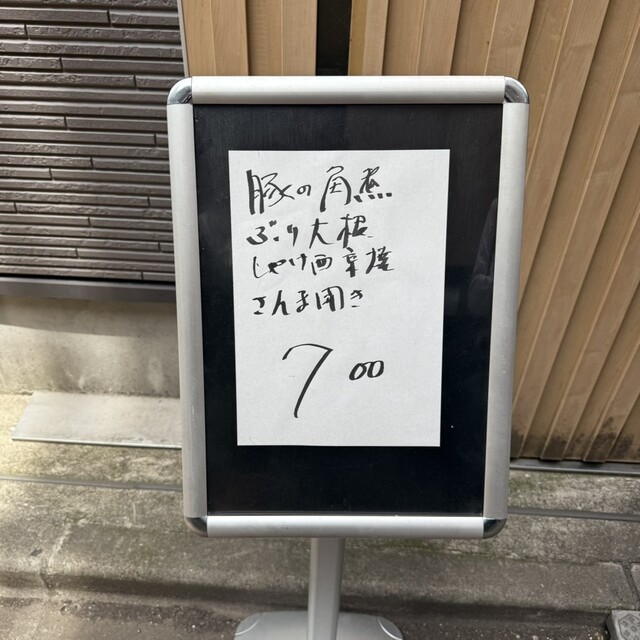 豚の角煮
ぶり大根
しゃけ西京焼
さんま開き
700